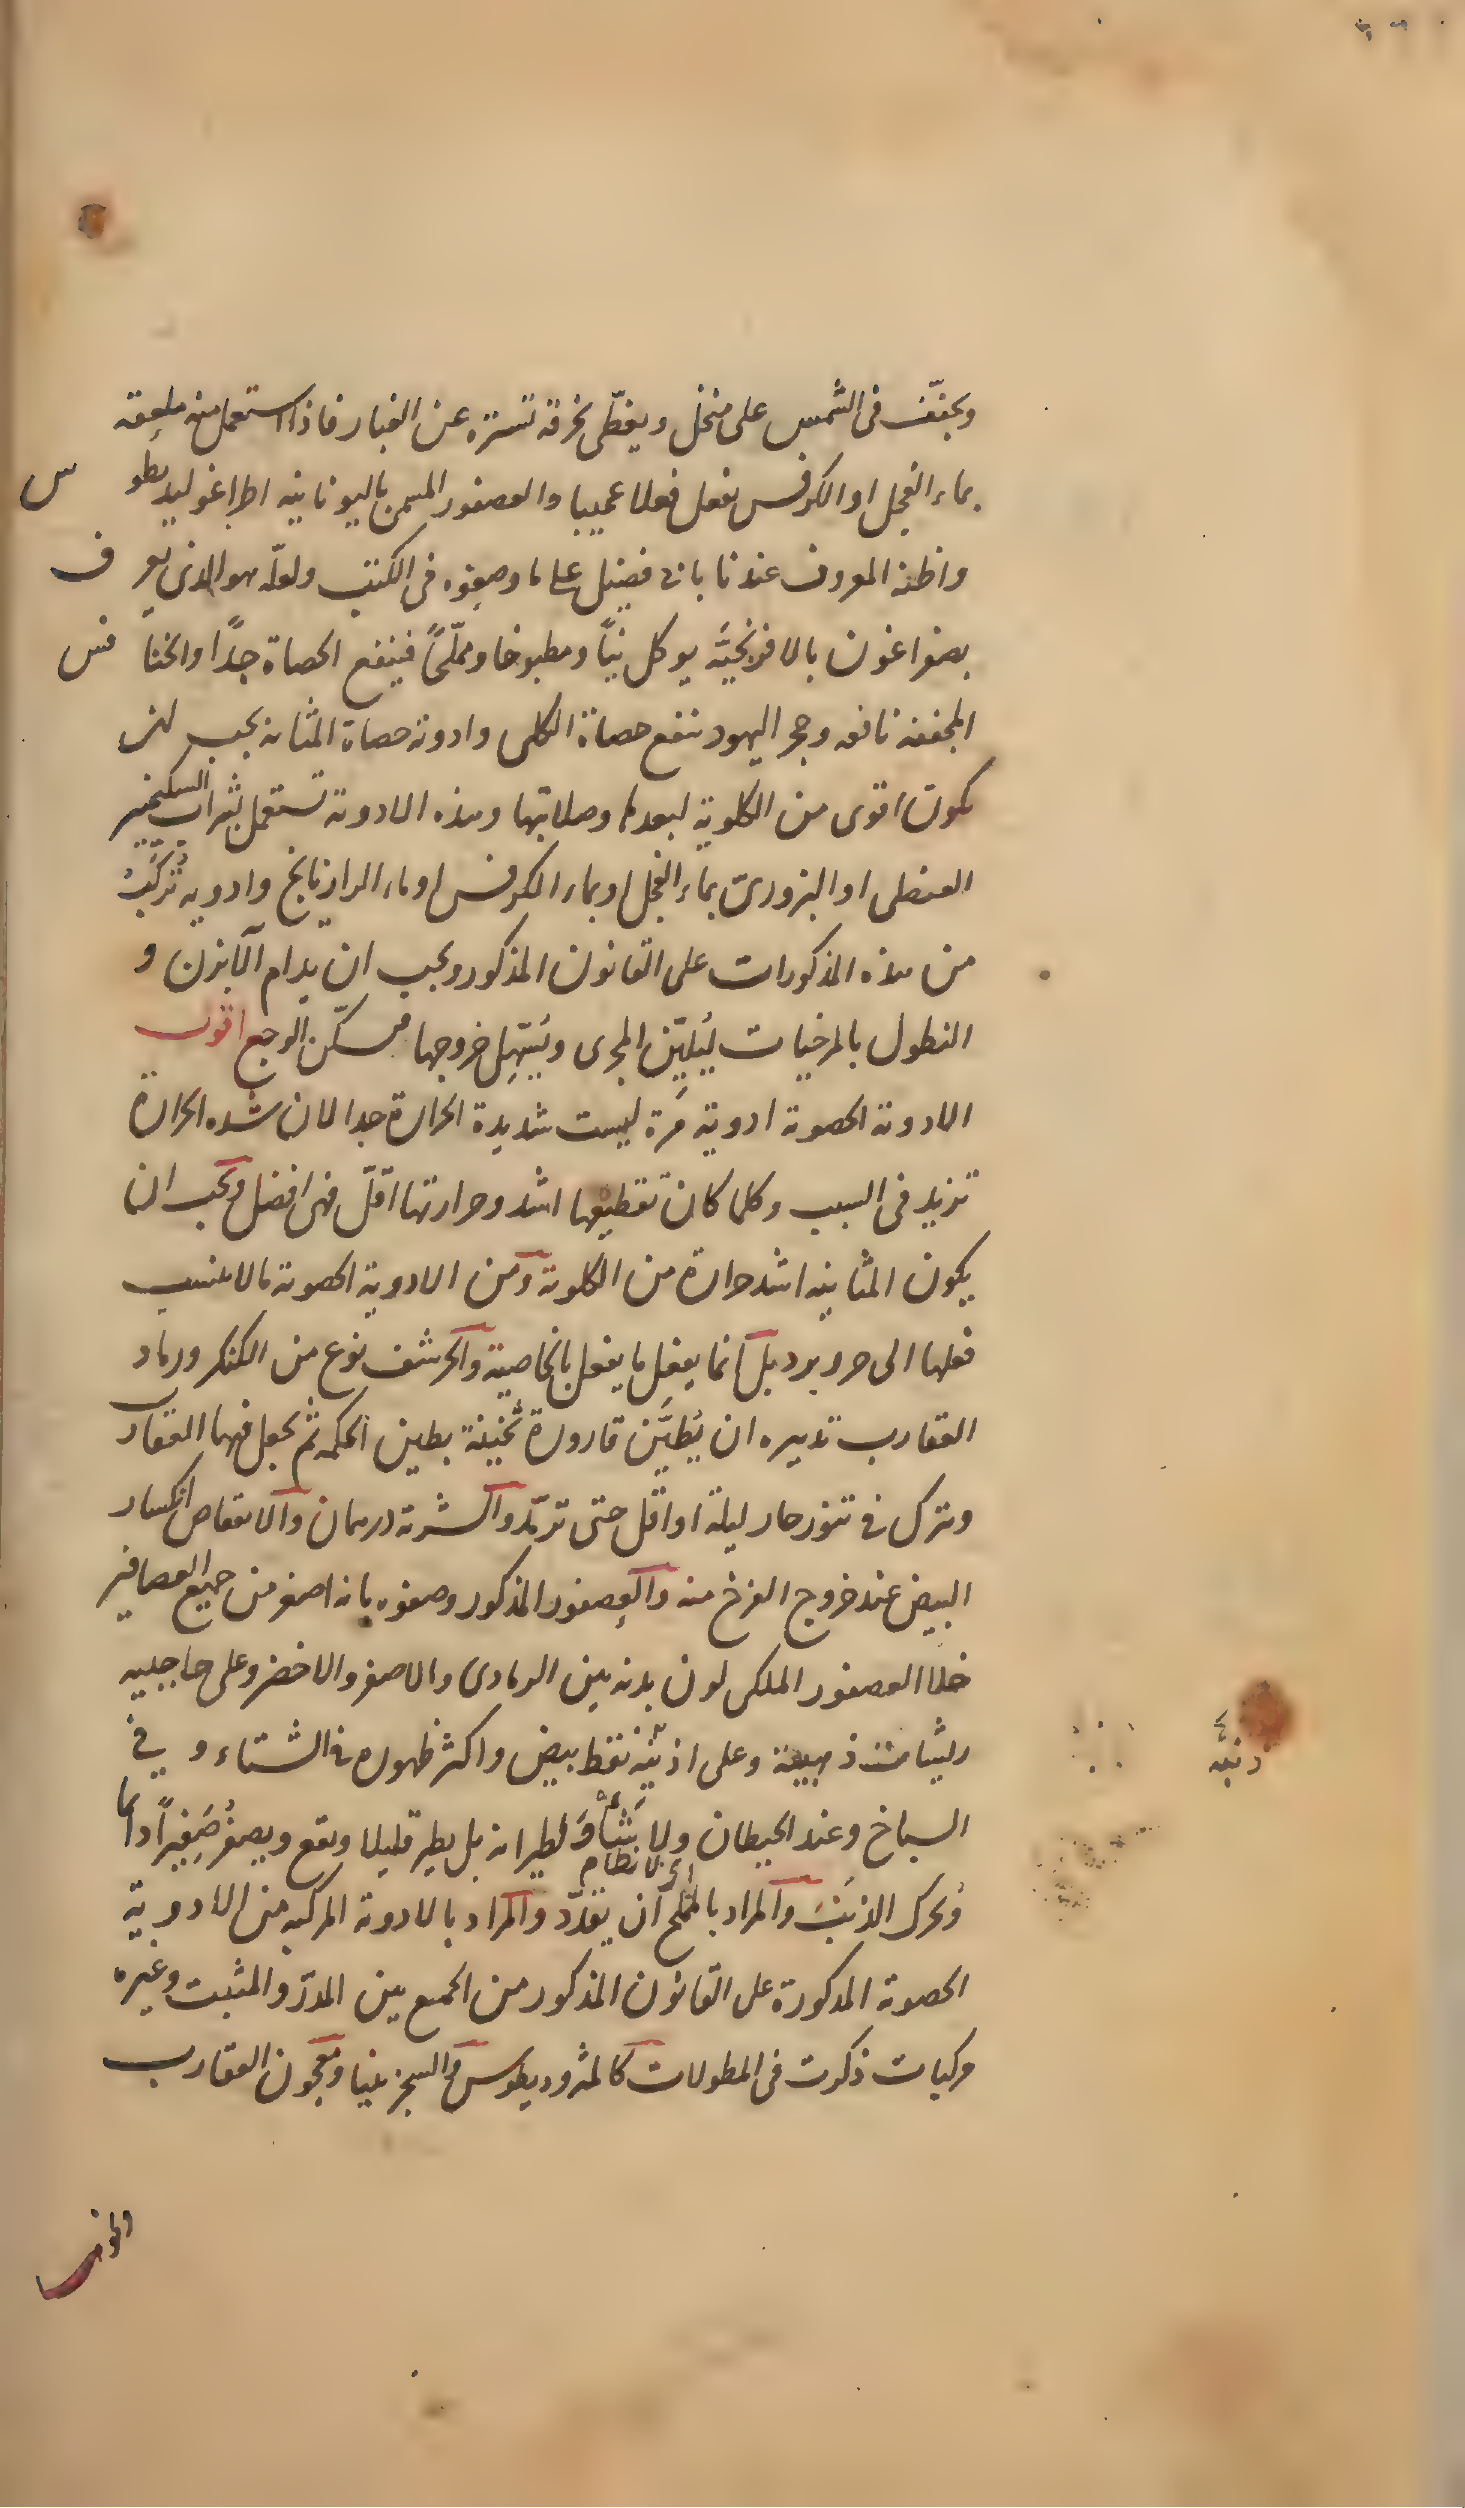 ويجفّف فى الشمس على منخل ويغطّى بخرقة تستره عن الغبار فاذا استعمل منه ملعقة
بماء الفجل او الكرفس يفعل فعلا عجيبا والعصفور المسمى باليونانيه اطراغوليديطوس
واظنه المعروف عندنا بابى فصيل على ما وصفوه فى الكتب ولعلّه هو الذى يعرف
بصفراغون بالافرنجيَّة يوكل نيًّا ومطبوخا ومملّحًا فينفع الحصاة جدًا والخنافس
المجففه نافعه وحجر اليهود ينفع حصاة الكلى وادوية حصاة المثانه يجب ان
تكون اقوى من الكلوية لبعدها وصلابتها وهذه الادوية تستعمل بشراب السكنجبين
العنصلى او البزورىّ بماء الفجل او بماء الكرفس او ماء الرازيانج وادوية تُركّبُ
من هذه المذكورات على القانون المذكور ويجب ان يدام الآبزن و
النطول بالمرخيات ليُليِّن المجرى ويُسَهِّل خروجها فيسكّن الوجع اقول
الادوية الحصوية ادوية مُرة ليست شديدة الحرارة جدا لان شده الحرارة
تزيد فى السبب وكلما كان تقطيعها اشد وحرارتها اقلّ فهى افضل ويجب ان
يكون المثانيه اشد حرارة من الكلوية ومن الادوية الحصوية ما لا ينسب
فعلها الى حر وبرد بل انما يفعل ما يفعل بالخاصية والحرشف نوع من الكنكر ورماد
العقارب تدبيره ان يُطيَّن قارورة ثخينة بطين الحكمه ثم يجعل فيها العقارب
وتترك فى تنور حار ليلة او اقل حتى ترمّد والشربة درهمان والانقاص انكسار
البيض عند خروج الفرخ منه والعصفور المذكور وصفوه بانه اصغر من جميع العصافير
خلا العصفور الملكى لون بدنه بين الرمادى والاصفر والاخضر وعلى حاجبيه
ريشات ذهبية وعلى اذنيه نقط بيض واكثر ظهوره فى الشتاء و فى
السباخ وعند الحيطان ولا لطيرانه بل يطير قليلا ويقع ويصفرُ صَفِيراً دائما
اى لا نظام
ويحرك الذنبَ والمراد بالمملح ان يقدّد والمراد بالادوية المركبه من الادوية
الحصوية المذكورة على القانون المذكور من الجمع بين المدرّ والمثبت وغيره
مركبات ذكرت فى المطولات كالمثروديطوس والسجزينيا ومعجون العقارب